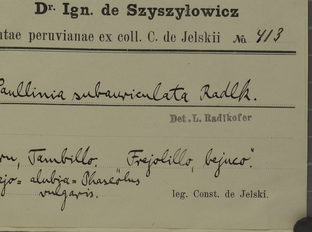 Dr. Ign. de Szyszyłowicz
ntae peruvianae ex coll. C. de Jelskii No. 413
Paullinia subauriculata Radlk.
Det. L. Radlkofer
ru, Tambillo. Frejolillo, bejuco".
ejo = alubia = Phaseolus
vulgaris.
leg. Const. de Jelski.